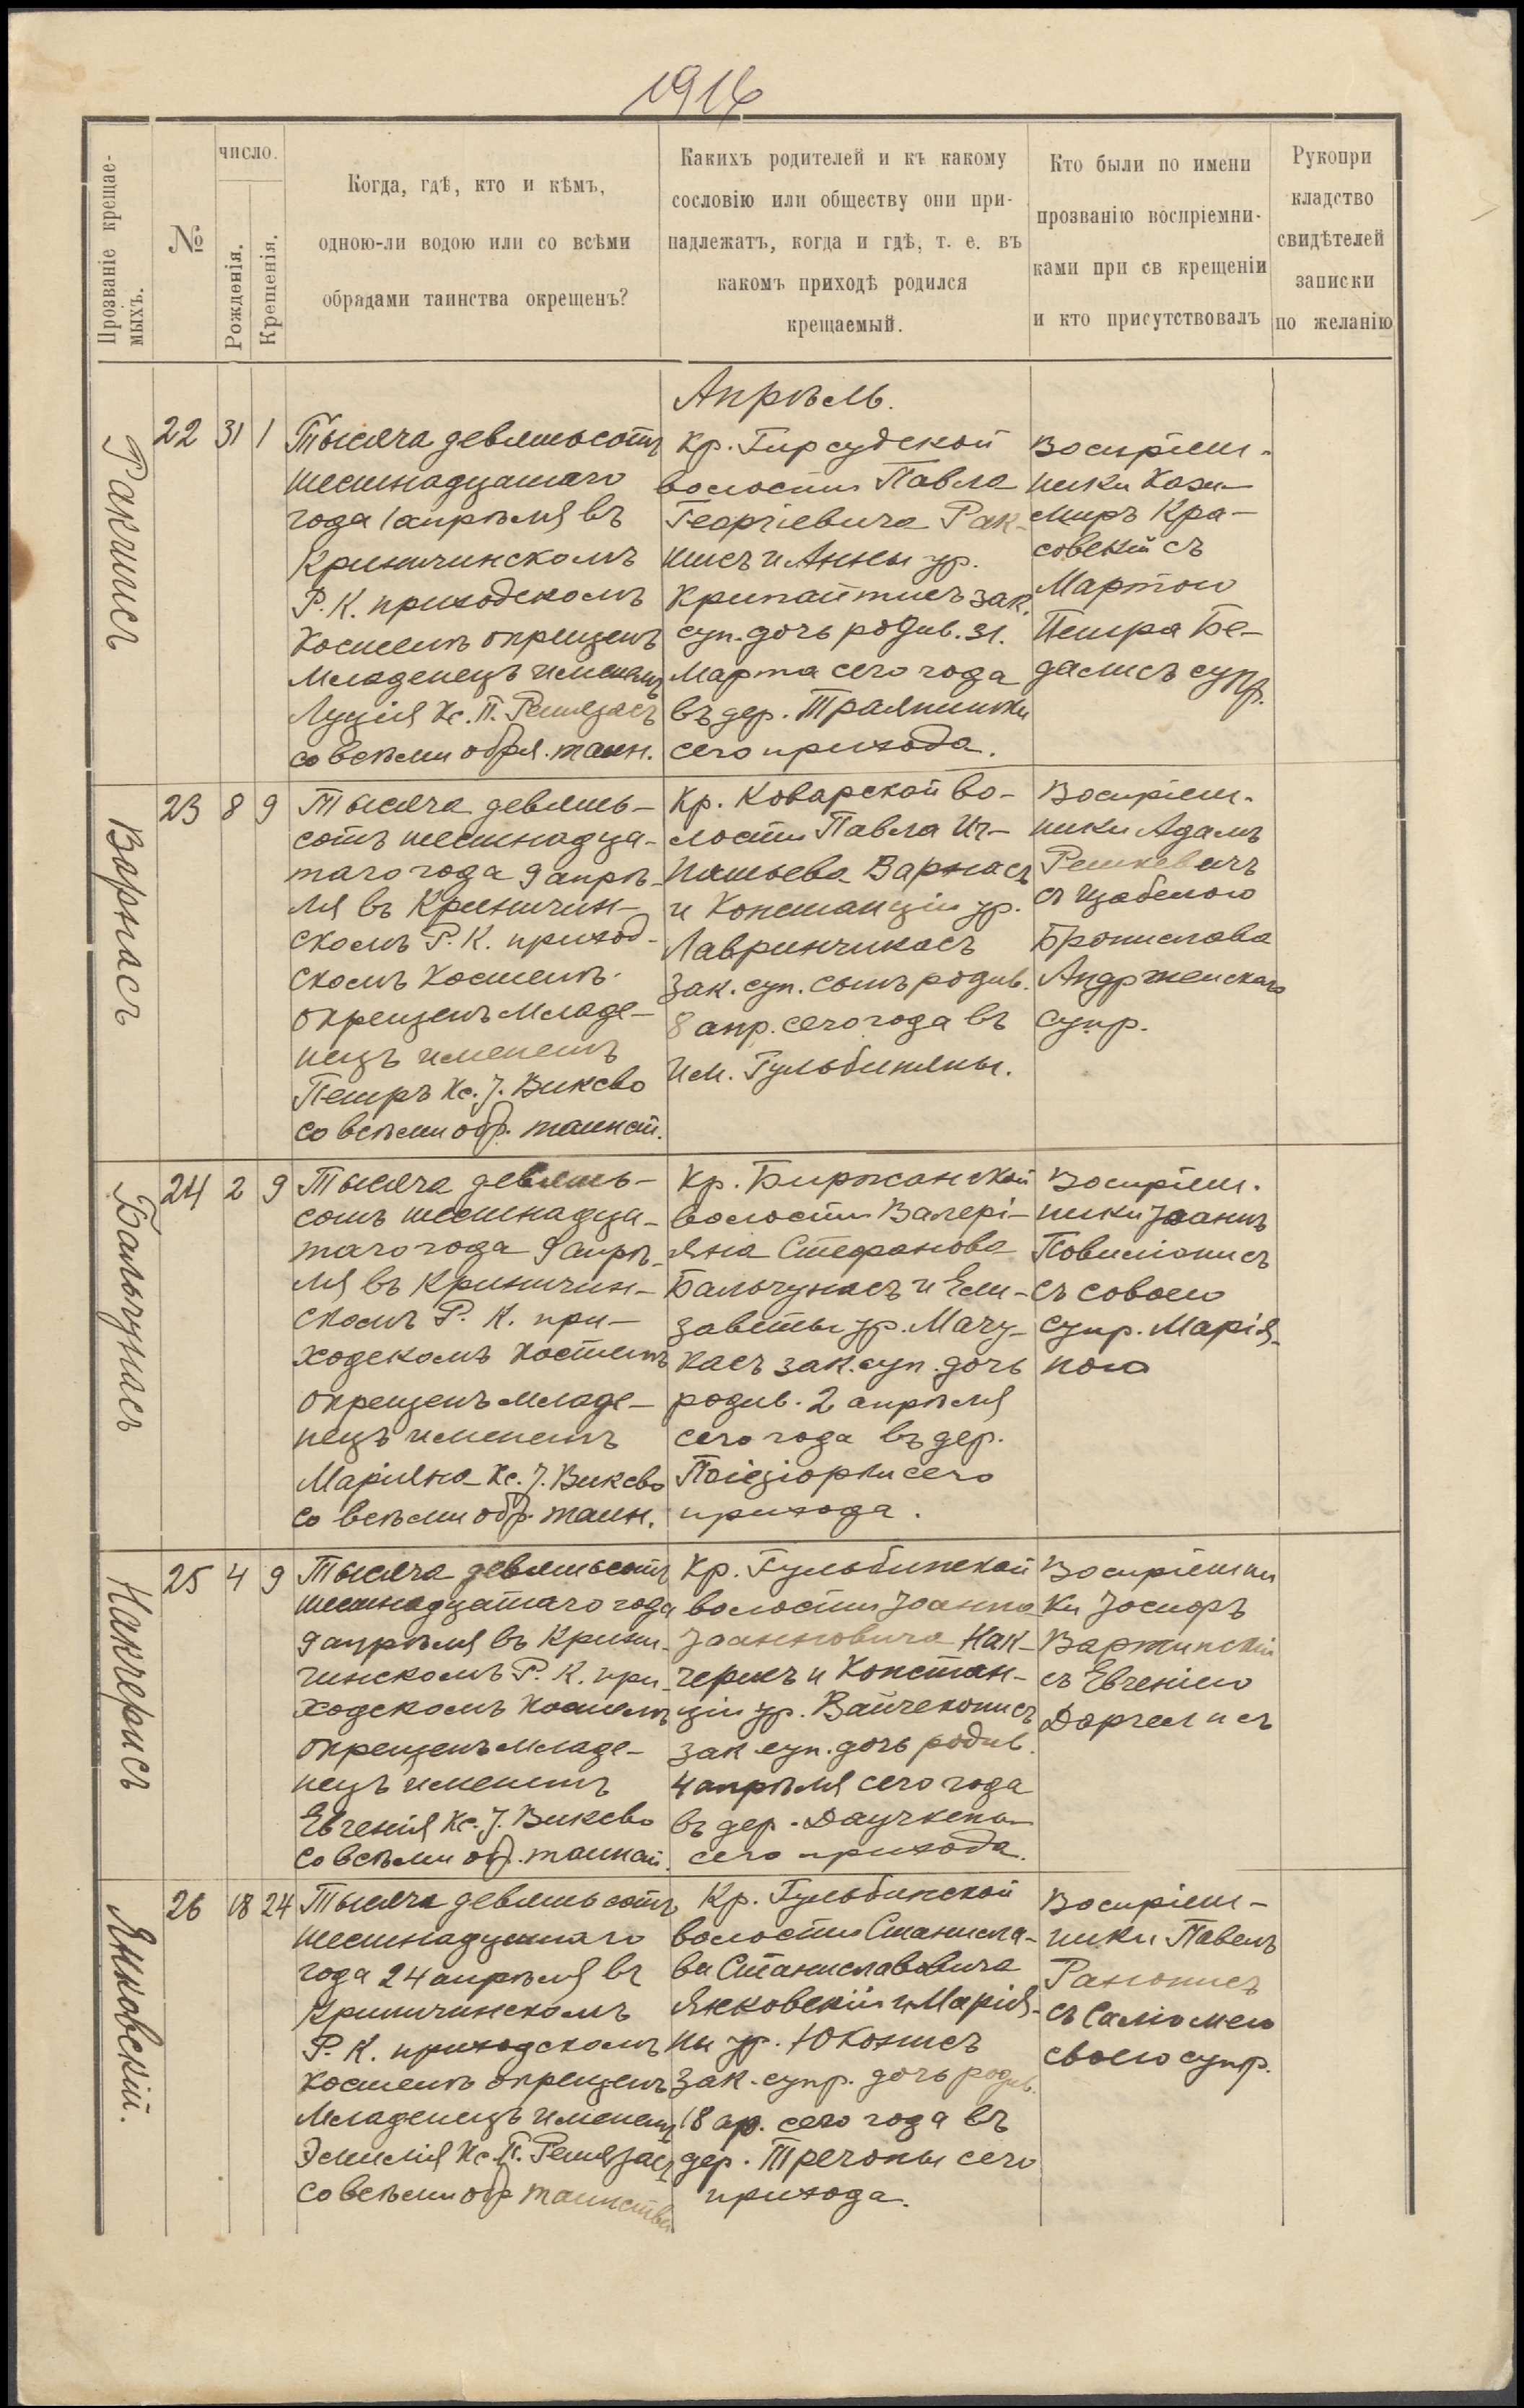 1916
Прозваніе крещае-
мыхъ.
№
число.
Рожденія.
Крещенія.
Когда, гдѣ, кто и кѣмъ,
одною-ли водою или со всѣми
обрядами таинства окрещенъ?
Какихъ родителей и къ какому
сословію или обществу они при-
надлежатъ, когда и гдѣ, т. е. въ
какомъ приходѣ родился
крещаемый.
Кто были по имени
прозванію воспріемни-
ками при св крещеніи
и кто присутствовалъ
Рукопри
кладство
свидѣтелей
записки
по желанію
Апрѣль.
Ракшисъ
22 31 1
Тысяча девятьсотъ
шестнадцатаго
года 1 апрѣля въ
Криничинскомъ
Р. К. приходскомъ
костелѣ окрещенъ
младенецъ именемъ
Луція Кс. П.
со всѣми обря. таин.
Кр. Гирсудской
волости Павла
Георгіевича Рак-
шисъ и Анны ур.
Крипайтисъ зак.
суп. дочь родив. 31.
Марта сего года
въ дер.
сего прихода.
Воспріем-
ники Кази-
миръ Кра-
совскій съ
Мартою
Петра Бе-
далисъ супр.
Варнасъ
23 8 9
Тысяча девять-
сотъ шестнадца-
таго года 9 апрѣ-
ля въ Криничин-
скомъ Р. К. приход-
скомъ костелѣ
окрещенъ младе-
нецъ именемъ
Петръ Кс. J. Виксво
со всѣми обр. таинст.
Кр. Коварской во-
лости Павла Иг-
натьева Варнасъ
и Констанціи ур.
Лавринчикасъ
зак. суп. сынъ родив.
8 апр. сего года въ
Им. Гульбиняны.
Воспріем-
ники Адамъ
Решкевичъ
съ Изабелою
Бронислава
Андржейскаго
супр.
Бальчунасъ
24 2 9
Тысяча девять-
сотъ шестнадца-
таго года 9 апрѣ-
ля въ Криничин-
скомъ Р. К. при-
ходскомъ костелѣ
окрещенъ младе-
нецъ именемъ
Маріяна Кс. J. Виксво
со всѣми обр. таин.
Кр. Биржанской
волости Валері-
яна Стефанова
Бальчунасъ и Ели-
заветы ур. Мачу-
касъ зак. суп. дочь
родив. 2 апрѣля
сего года въ дер.
сего
прихода.
Воспріем-
ники Jоаннъ
Повиліонисъ
съ совоею
супр. Марія-
ною
Накчерисъ
25 4 9
Тысяча девятьсотъ
шестнадцатаго года
9 апрѣля въ Крини-
чинскомъ Р. К. при-
ходскомъ костелѣ
окрещенъ младе-
нецъ именемъ
Евгенія Кс. J. Виксво
со всѣми обр. таинст.
Кр. Гульбинской
волости Jоанна
Jоанновича Нак-
черисъ и Констан-
ціи ур. Вайчеконисъ
зак. суп. дочь родив.
4 апрѣля сего года
въ дер.
сего прихода.
Воспріемни
ки Jосифъ
Вартинскій
съ Евгеніею
Даргелисъ
Янковскій.
26 18 24
Тысяча девятьсотъ
шестнадцатаго
года 24 апрѣля въ
Криничинскомъ
Р. К. приходскомъ
костелѣ окрещенъ
младенецъ именемъ
Эмилія Кс. П.
со всѣми обр таинства
Кр. Гульбинской
волости Станисла-
ва Станиславовича
Янковскій и Марія-
ны ур. Юконисъ
зак. супр. дочь родив.
18 ар. сего года въ
дер. Тречоны сего
прихода.
Воспріем-
ники Павелъ
съ Саломею
своею супр.